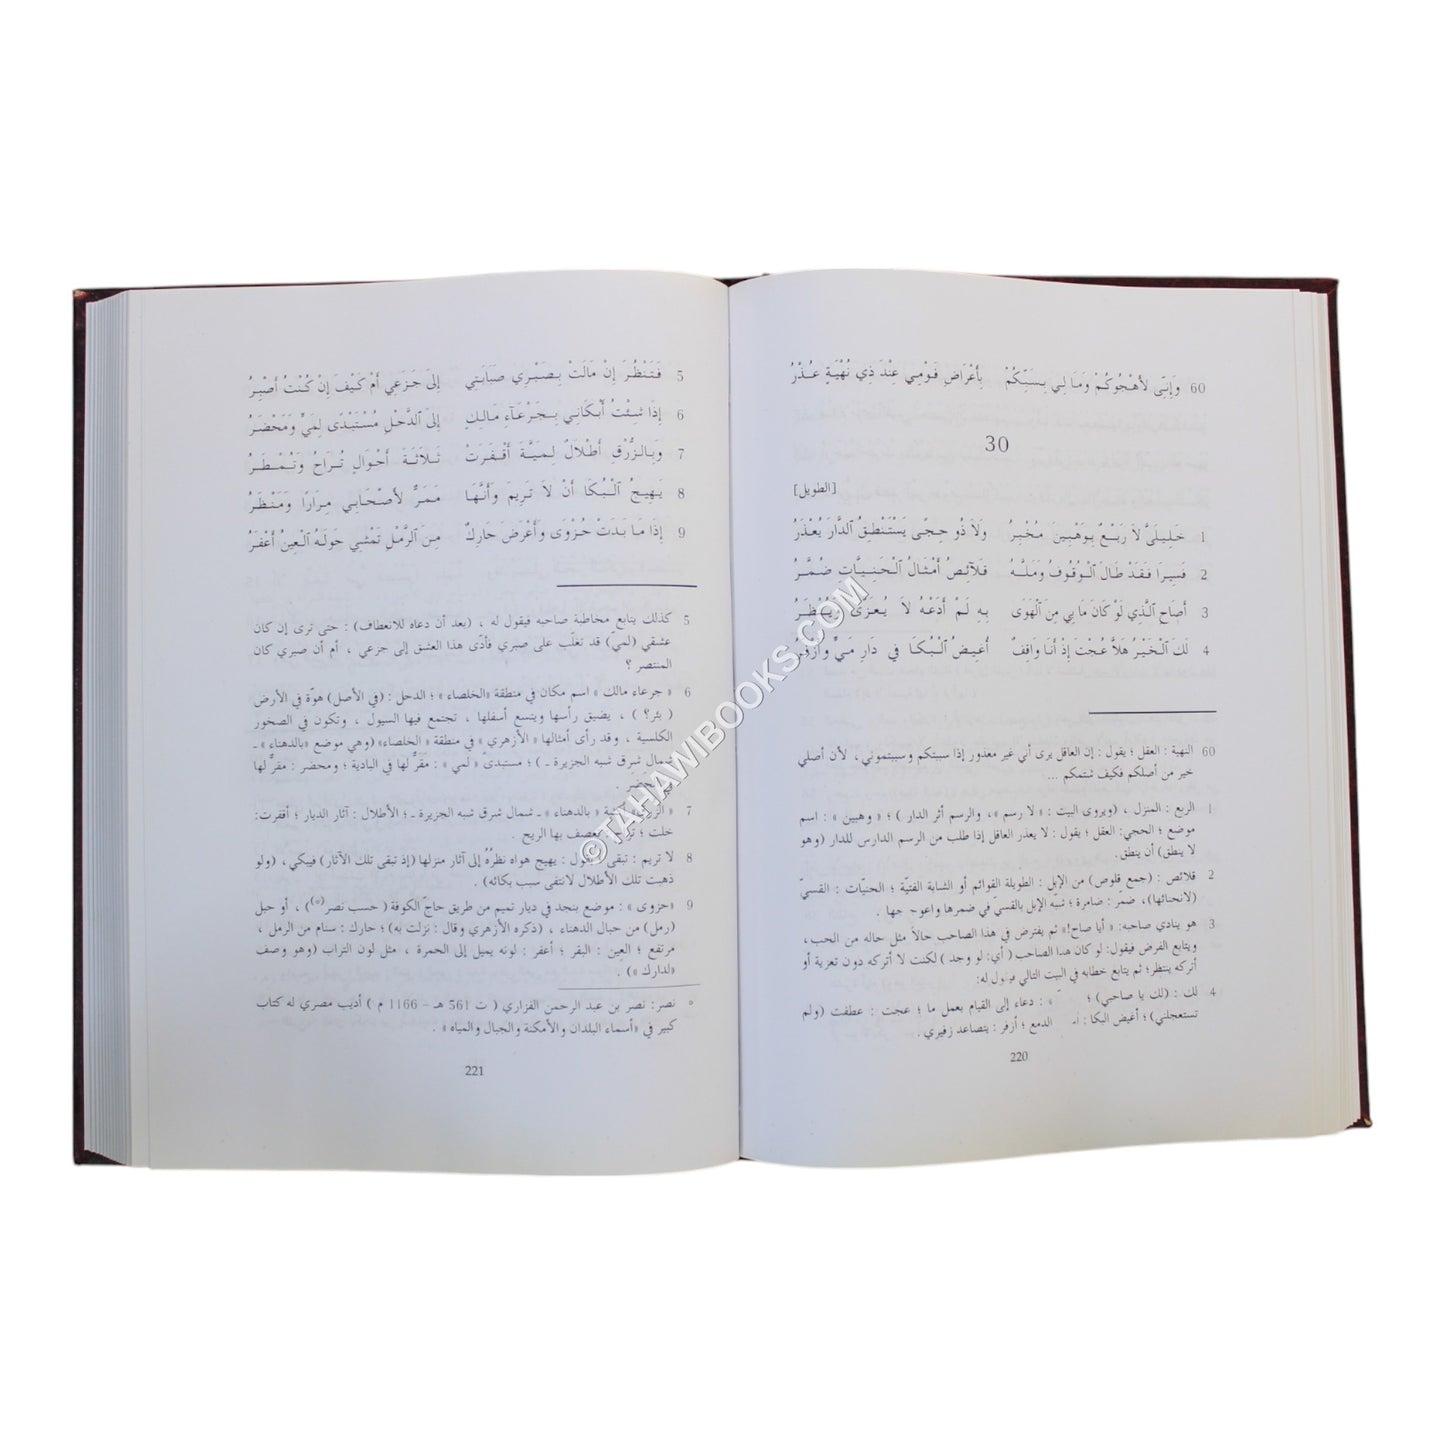 60 وَإِنِّى لَأَهْجُوكُمْ وَمَا لِي بِسَبِّكُمْ بِأَعْرَاضِ قَوْمِي عِنْدَ ذِي نُهْيَةٍ عُذْرُ
30
[الطويل]
1 خَلِيلَيَّ لَا رَبْعٌ بِوَهْبِينَ مُخْبِرُ وَلَا ذُو حِجًى يَسْتَنْطِقُ الدَّارَ يُعْذَرُ
2 فَسِيرَا فَقَدْ طَالَ الْوُقُوفُ وَمَلَّهُ قَلَائِصُ أَمْثَالُ الْحَنِيَّاتِ ضُمَّرُ
3 أَصَاحِ الَّذِي لَوْ كَانَ مَا بِي مِنَ الْهَوَى بِهِ لَمْ أَدَعْهُ لَا يُعَزَّى وَيُنْظَرُ
4 لَكَ الْخَيْرُ هَلَّا عُجْتَ إِذْ أَنَا وَاقِفٌ أُغِيضُ الْبُكَا فِي دَارِ مَيٍّ وَأَزْفِرُ
60 النهية : العقل ؛ يقول : إن العاقل يرى أني غير معذور إذا سببتكم وسببتموني ، لأن أصلي
خير من أصلكم فكيف شتمكم ...
1 الربع : المنزل ، (ويروى البيت : « لا رسم »، والرسم أثر الدار ) ؛ « وهبين » : اسم
موضع ؛ الحجي: العقل ؛ يقول : لا يعذر العاقل إذا طلب من الرسم الدارس للدار (وهو
لا ينطق) أن ينطق.
2 قلائص : (جمع قلوص) من الإبل : الطويلة القوائم أو الشابة الفتيّة ؛ الحنيّات : القسيّ
(لانحنائها)، ضمر : ضامرة ؛ شبه الإبل بالقسيّ في ضمرها واعوجاجها .
3 هو ينادي صاحبه: « أيا صاح!» ثم يفترض في هذا الصاحب حالاً مثل حاله من الحب،
ويتابع الفرض فيقول: لو كان هذا الصاحب ( أي: لو وجد ) لكنت لا أتركه دون تعزية أو
أتركه ينتظر؛ ثم يتابع خطابه في البيت التالي فيقول له:
4 لك : (لك يا صاحبي) ؛ » : دعاء إلى القيام بعمل ما ؛ عجت : عطفت (ولم
تستعجلني) ؛ أغيض البكا : الدمع ؛ أزفر : يتصاعد زفيري .
220
5 فَتَنْظُرَ إِنْ مَالَتْ بِصَبْرِي صَبَابَتِي إِلَى جَزَعِي أَمْ كَيْفَ إِنْ كُنْتُ أَصْبِرُ
6 إِذَا شِئْتُ أَبْكَانِي بِجَرْعَاءِ مَالِكٍ إِلَى الدَّحْلِ مُسْتَبْدًى لِمَيٍّ وَمَحْضَرُ
7 وَبِالزُّرْقِ أَطْلَالٌ لِمَيَّةَ أَقْفَرَتْ ثَلَاثَةَ أَحْوَالٍ تُرَاحُ وَتُمْطَرُ
8 يَهِيجُ الْبُكَا أَنْ لَا تَرِيمَ وَأَنَّهَا مَمَرٌّ لِأَصْحَابِي مِرَارًا وَمَنْظَرُ
9 إِذَا مَا بَدَتْ حُزْوَى وَأَعْرَضَ حَارِكٌ مِنَ الرَّمْلِ تَمْشِي حَوْلَهُ الْعِينُ أَعْفَرُ
5 كذلك يتابع مخاطبة صاحبه فيقول له ، (بعد أن دعاه للانعطاف) : حتى ترى إن كان
عشقي (لميّ) قد تغلّب على صبري فأدّى هذا العشق إلى جزعي ، أم أن صبري كان
المنتصر ؟
6 « جرعاء مالك » اسم مكان في منطقة «الخلصاء» ؛ الدحل : (في الأصل) هوّة في الأرض
( بئر؟ ) ، يضيق رأسها ويتسع أسفلها ، تجتمع فيها السيول ، وتكون في الصخور
الكلسية ، وقد رأى أمثالها « الأزهري » في منطقة « الخلصاء» (وهي موضع «بالدهناء» ـ
شمال شرق شبه الجزيرة ـ ) ؛ مستبدىً « لمي» : مَقَرٌّ لها في البادية ؛ ومحضر : مقرٌّ لها
7 « بالدهناء » ـ شمال شرق شبه الجزيرة ـ ؛ الأطلال : آثار الديار ؛ أقفرت:
خلت ؛ تعصف بها الريح .
8 لا تريم : تبقى : يهيج هواه نظرُهُ إلى آثار منزلها (إذ تبقى تلك الآثار) فيبكي ، (ولو
ذهبت تلك الأطلال لانتفى سبب بكائه) .
9 «حزوى» : موضع بنجد في ديار تميم من طريق حاجّ الكوفة ( حسب نصر(°) ) ، أو حبل
(رمل) من حبال الدهناء ، (ذكره الأزهري وقال : نزلت به) ؛ حارك : سنام من الرمل ،
مرتفع ؛ العِين : البقر ؛ أعفر : لونه يميل إلى الحمرة ، مثل لون التراب (وهو وصف
«لدارك ») .
° نصر: نصر بن عبد الرحمن الفزاري ( ت 561 هـ – 1166 م ) أديب مصري له كتاب
كبير في «أسماء البلدان والأمكنة والجبال والمياه » .
221
© TAHAWIBOOKS.COM